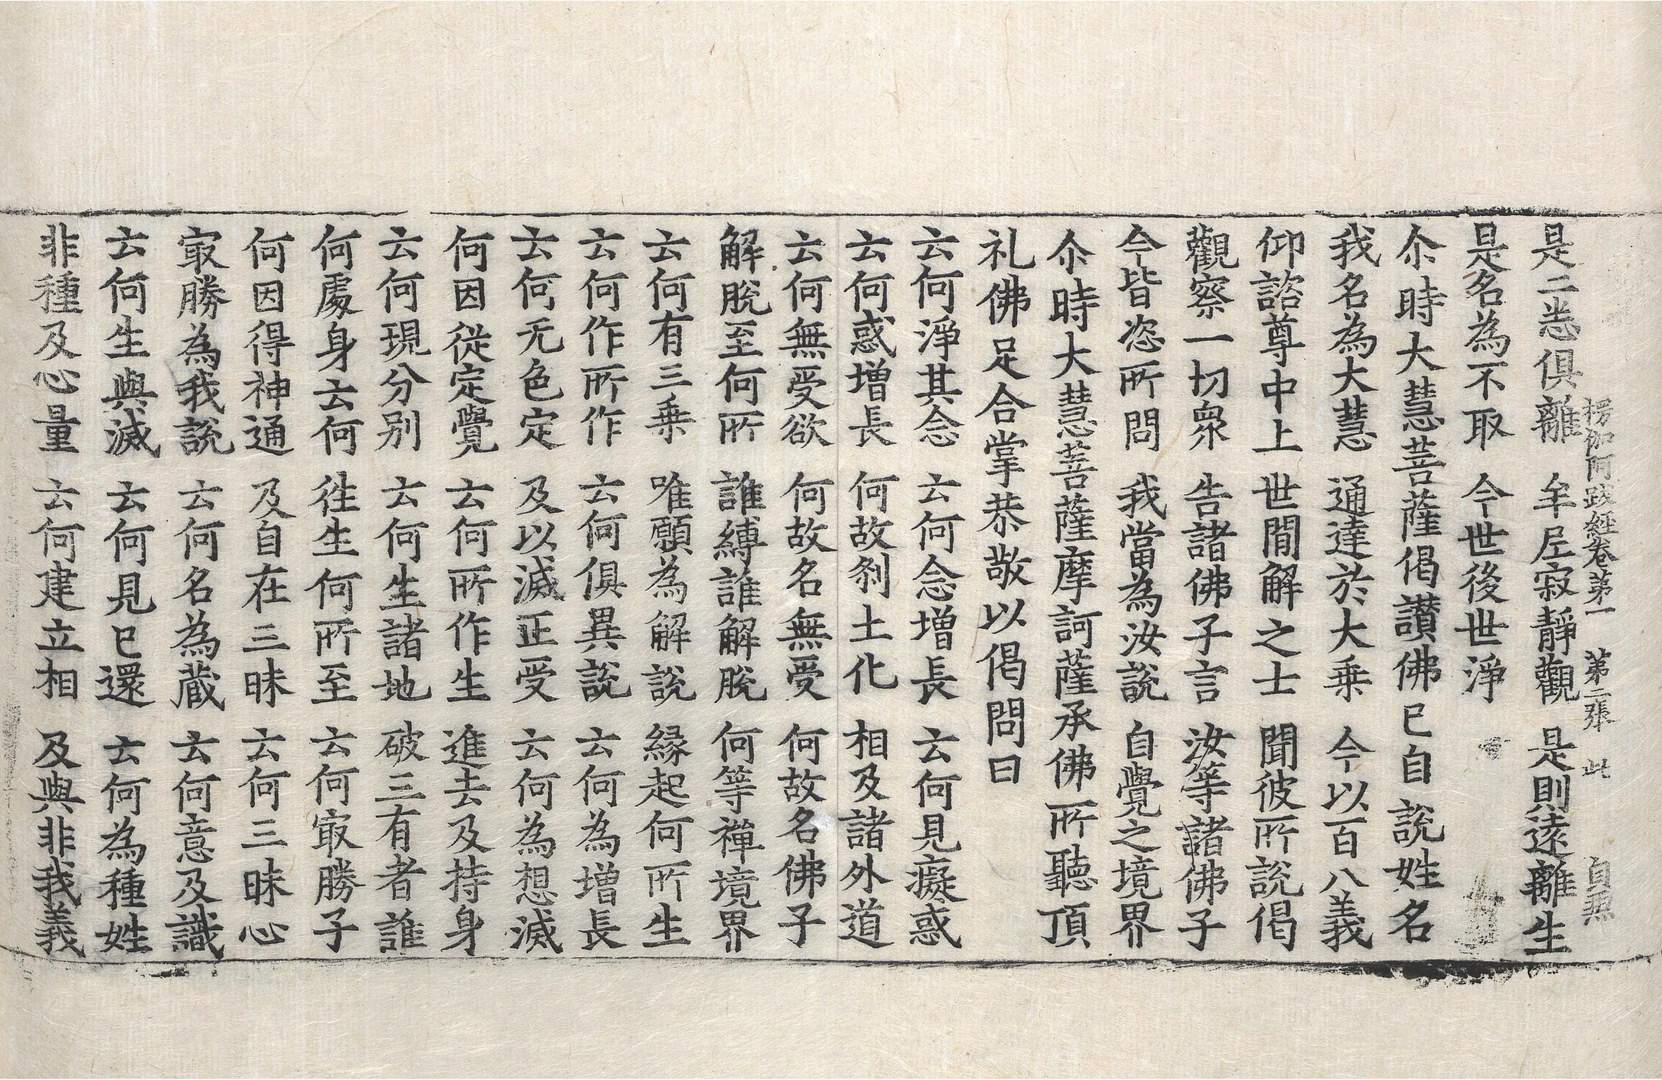 楞伽阿跋經卷第一　第二張　此　　自無
是二悉俱離　牟尼寂靜觀　是則遠離生
是名為不取　今世後世淨
尒時大慧菩薩偈讃佛已自說姓名
我名為大慧　通達於大乗　今以百八義
仰諮尊中上　世閒解之士　聞彼所說偈
觀察一切衆　告諸佛子言　汝等諸佛子
今皆恣所問　我當為汝說　自覺之境界
尒時大慧菩薩摩訶薩承佛所聽頂
礼佛足合掌恭敬以偈問曰
云何淨其念　云何念增長　云何見癡惑
云何惑增長　何故刹土化　相及諸外道
云何無受欲　何故名無受　何故名佛子
解脫至何所　誰縛誰解脫　何等禪境界
云何有三乗　唯願為解說　縁起何所生
云何作所作　云何俱異說　云何為增長
云何无色定　及以滅正受　云何為想滅
何因從定覺　云何所作生　進去及持身
云何現分別　云何生諸地　破三有者誰
何處身云何　徃生何所至　云何㝡勝子
何因得神通　及自在三昧　云何三昧心
㝡勝為我說　云何名為蔵　云何意及識
云何生與滅　云何見已還　云何為種姓
非種及心量　云何建立相　及與非我義